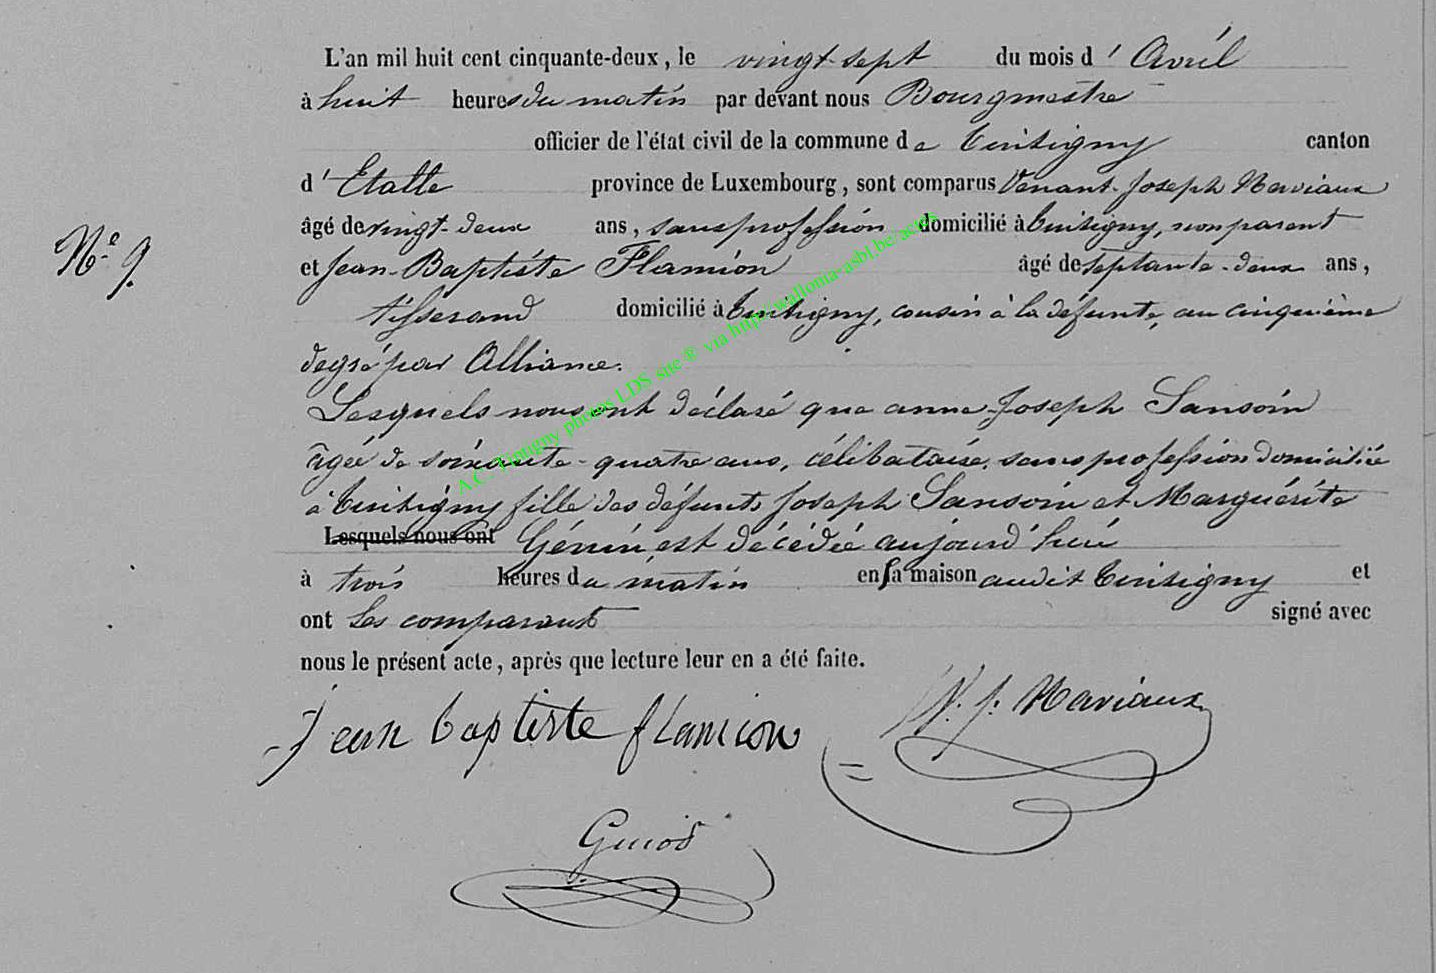 L'an mil huit cent cinquante-deux, le vingt-sept du mois d' Avril
à huit heures du matin par devant nous Bourgmestre
officier de l'état civil de la commune de Tintigny canton
d' Etalle province de Luxembourg, sont comparus Venant-Joseph Naviaux
âgé de vingt-deux ans, sans profession domicilié à Tintigny, non parent
N.° 9.
et Jean-Baptiste Flamion âgé de septante-deux ans,
tisserand domicilié à Tintigny, cousin à la défunte, au cinquième
degré par Alliance.
Lesquels nous ont déclaré que anne-Joseph Sansoin
âgée de soixante-quatre ans, célibataire, sans profession domiciliée
à Tintigny fille des défunts Joseph Sansoin et Marguérite
Lesquels nous ont Génin, est décédée aujourd'hui
à trois heures du matin en sa maison audit Tintigny et
ont les comparants signé avec
nous le présent acte, après que lecture leur en a été faite.
Jean baptiste flamion V. J. Naviaux
Guiot
A.C. Tintigny photos LDS site ® via http://wallonia-asbl.be/actes